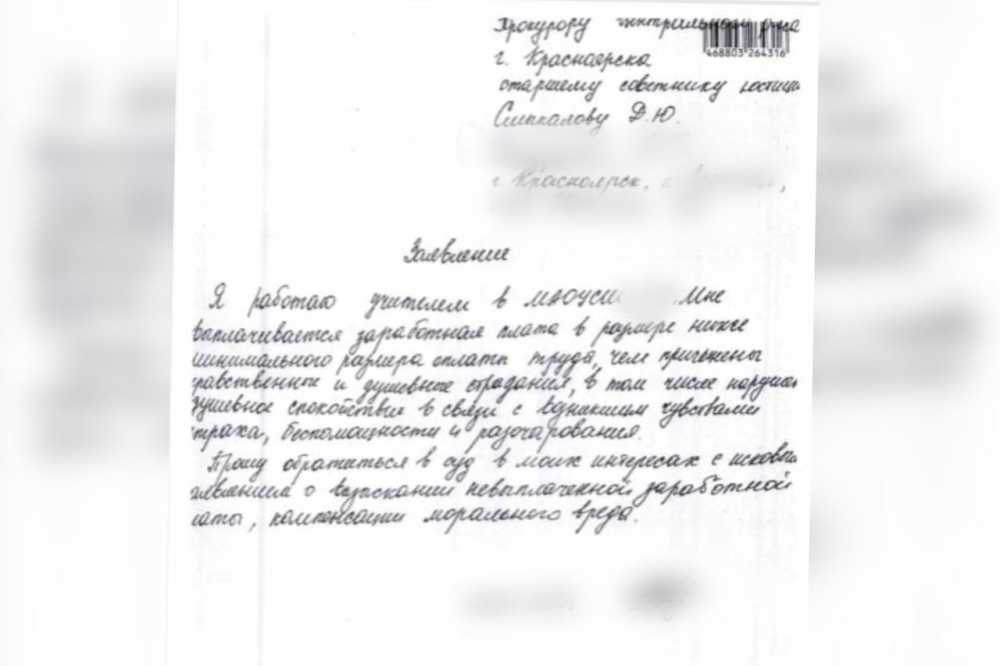 Прокурору центрального р-на
468803 264316
г. Красноярска
старшему советнику юстиции
Смыкалову Д.Ю.
г. Красноярск,
Заявление
Я работаю учителем в МАОУСШ Мне
выплачивается заработная плата в размере ниже
минимального размера оплаты труда, чем причинены
равственные и душевные страдания, в том числе наруше
душевное спокойствие в связи с возникшим чувствами
траха, беспомощности и разочарования.
Прошу обратиться в суд в моих интересах с исковым
аявлением о взыскании невыплаченной заработной
латы, компенсации морального вреда.